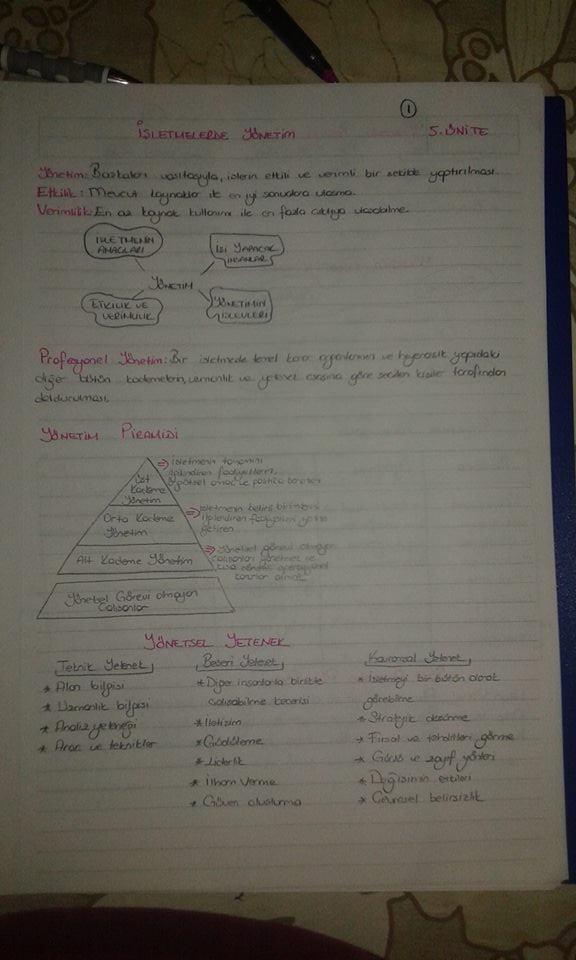 1
İŞLETMELERDE YÖNETİM 5.ÜNİTE
Yönetim: Başkaları vasıtasıyla, işlerin etkili ve verimli bir şekilde yaptırılması.
Etkilik: Mevcut kaynaklar ile en iyi sonuçlara ulaşma.
Verimlilik: En az kaynak kullanımı ile en fazla çıktıya ulaşabilme.
İŞLETMENİN AMAÇLARI
İŞİ YAPACAK İNSANLAR
YÖNETİM
ETKİLİK VE VERİMLİLİK
YÖNETİMİN İŞLEVLERİ
Profesyonel Yönetim: Bir işletmede temel karar organlarının ve hiyerarşik yapıdaki
diğer bütün kademelerin, uzmanlık ve yetenek esasına göre seçilen kişiler tarafından
doldurulması.
YÖNETİM PİRAMİDİ
Üst
Kademe
Yönetim
⇒ işletmenin tamamını
ilgilendiren faaliyetlerin,
örgütsel amaç ve politika
Orta Kademe
Yönetim
⇒ işletmenin belirli birimlerini
ilgilendiren faaliyetleri yerine
getiren
Alt Kademe Yönetim
⇒ Yönetsel görevi olmayan
çalışanları yönetmek ve
kısa operasyonel
kararlar almak
Yönetsel Görevi olmayan
Çalışanlar
YÖNETSEL YETENEK
Teknik Yetenek
* Alan bilgisi
* Uzmanlık bilgisi
* Analiz yeteneği
* Araç ve teknikler
Beşeri Yetenek
* Diğer insanlarla birlikte
çalışabilme becerisi
* İletişim
* Güdüleme
* Liderlik
* İlham verme
* Güven oluşturma
Kavramsal Yetenek
* İşletmeyi bir bütün olarak
görebilme
* Stratejik düşünme
* Fırsat ve tehditleri görme
* Güçlü ve zayıf yönleri
* Değişimin etkileri
* Çevresel belirsizlik